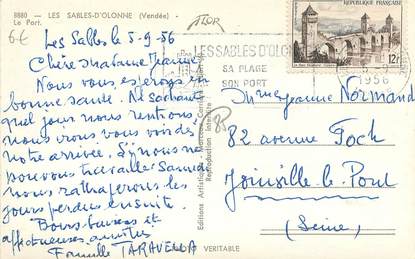 8880 - LES SABLES-D'OLONNE (Vendée)
Le Port.
6€
Les Sables le 5-9-56
Chère Madame Jeanne
Nous vous espérons en
bonne santé. Ne sachant
quel jour nous rentrons,
nous irons vous voir dès
notre arrivée. Si nous ne
pouvons travailler Samedi
nous rattraperons les
jours perdus ensuite.
Bons baisers et
affectueuses amitiés
Famille TARAVELLA
LES SABLES D'OLONNE
SA PLAGE
SON PORT
1956
RÉPUBLIQUE FRANÇAISE
12F
Editions Artistiques
Reproduction interdite
VERITABLE
85
Mme Jeanne Normand
82 avenue Foch
Joinville-le-Pont
(Seine)